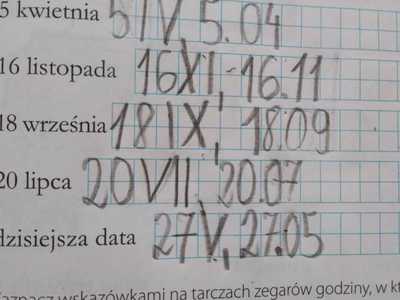 5 kwietnia 5 IV, 5.04
16 listopada 16 XI, 16.11
18 września 18 IX, 18.09
20 lipca 20 VII, 20.07
dzisiejsza data 27 V, 27.05
wskazówkami na tarczach zegarów godziny, w